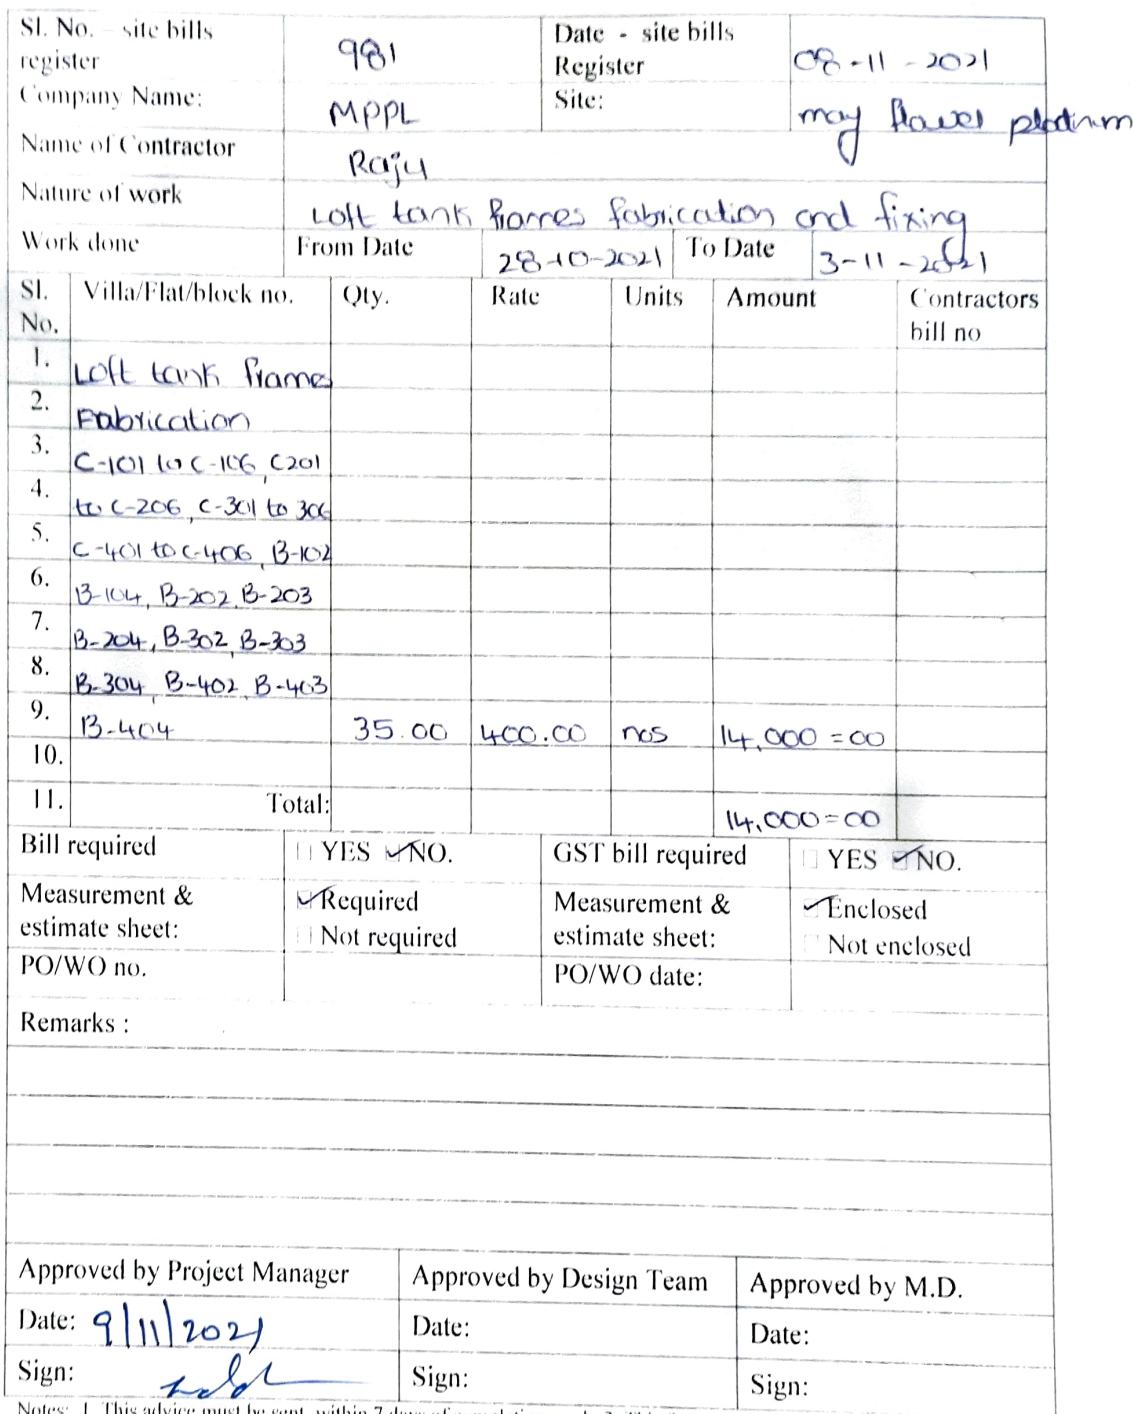 Sl. No. - site bills register 981 Date - site bills Register 08-11-2021
Company Name: MPPL Site: may flower platinum
Name of Contractor Raju
Nature of work Loft tank frames fabrication and fixing
Work done From Date 28-10-2021 To Date 3-11-2021
Sl. No. Villa/Flat/block no. Qty. Rate Units Amount Contractors bill no
1. Loft tank frames
2. Fabrication
3. C-101 to C-106, C201
4. to C-206, C-301 to 306
5. C-401 to C-406, B-102
6. B-104, B-202, B-203
7. B-204, B-302, B-303
8. B-304, B-402, B-403
9. B-404 35.00 400.00 nos 14,000=00
10.
11. Total: 14,000=00
Bill required YES NO. GST bill required YES NO.
Measurement & estimate sheet: Required Not required Measurement & estimate sheet: Enclosed Not enclosed
PO/WO no. PO/WO date:
Remarks :
Approved by Project Manager Approved by Design Team Approved by M.D.
Date: 9/11/2021 Date: Date:
Sign: Sign: Sign:
Notes: 1. This advice must be sent within 7 days of